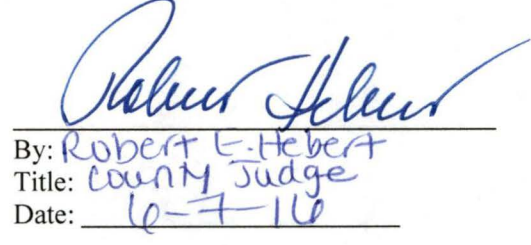 Robert Hebert
By: Robert E. Hebert
Title: County Judge
Date: 6-7-16